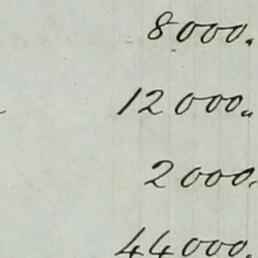 8000.
12000.
2000.
44000.